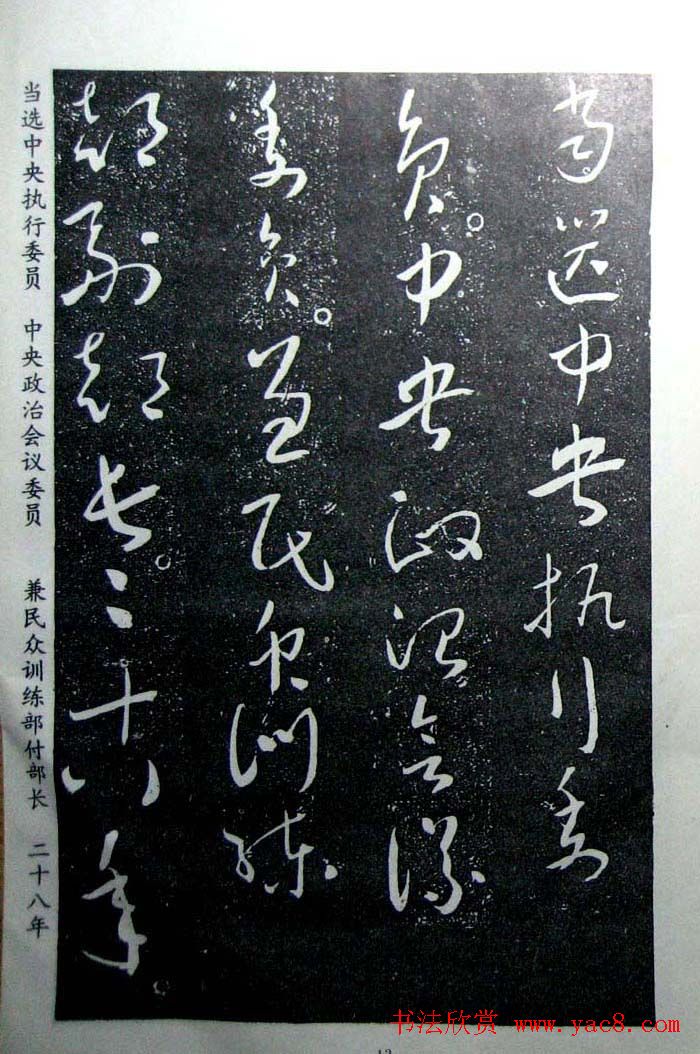 當選中央執行委
員。中央政治會議
委員。兼民眾訓練
部副部長。二十八年。
当选中央执行委员 中央政治会议委员 兼民众训练部付部长 二十八年
书法欣赏 www.yac8.com